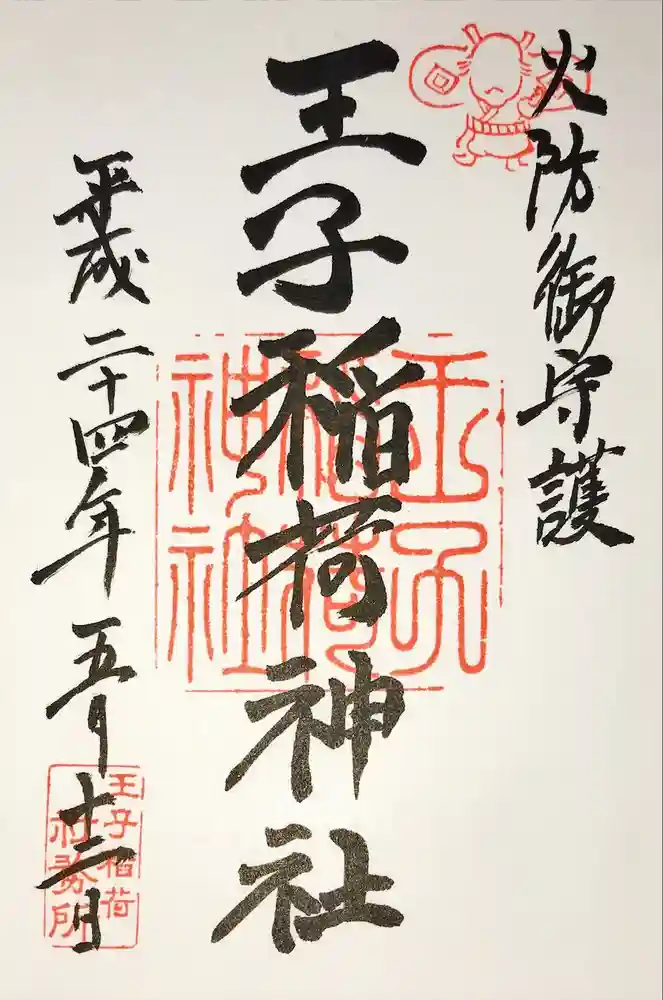 火防御守護
王子稲荷神社
王子
稲荷
神社
平成二十四年五月十三日
王子稲荷
社務所